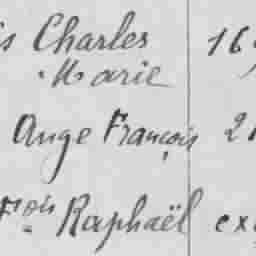 is Charles 16
Marie
Ange François 2
Fçois Raphaël ex